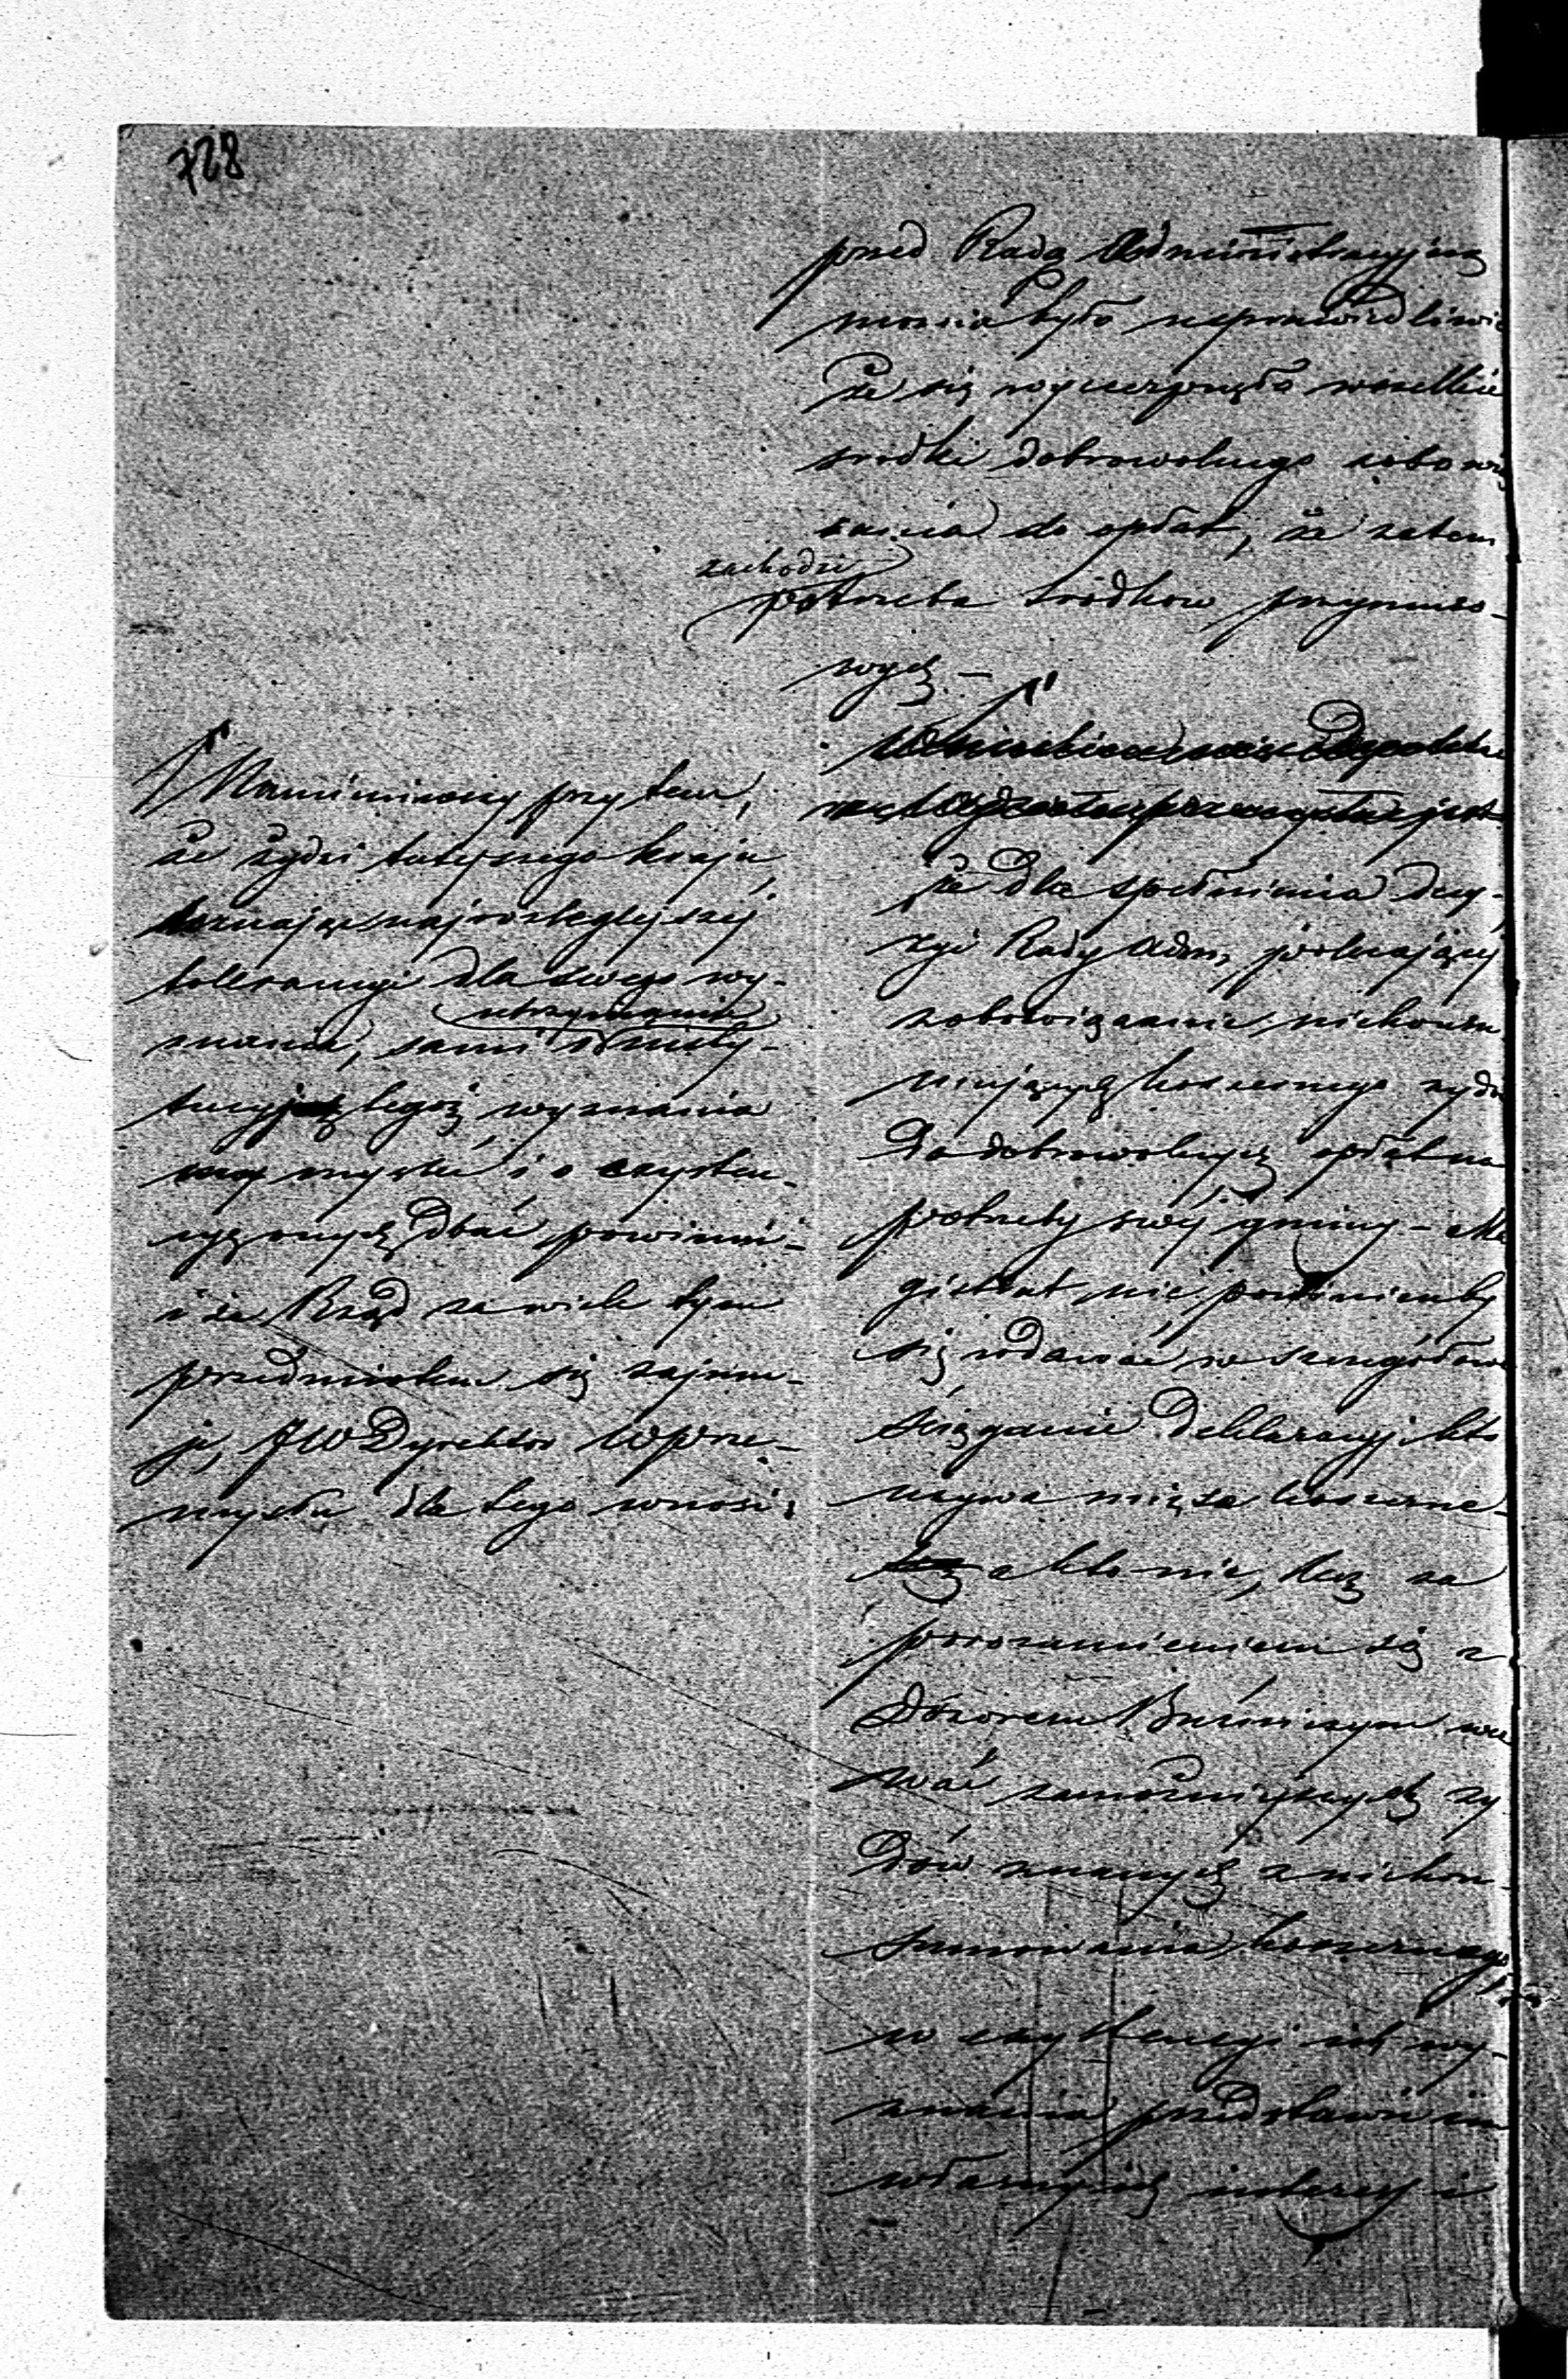 728
przed Radą Administracyjną
można było usprawiedliwić
że się wyczerpnęło wszelkie
srodki dobrowolnego zobowią
zania do opłat, że zatem
zachodzi
potrzeba srodkow przymuso-
wych. –
że dla spełnienia decy-
zyi Rady Adm, polecającej
zobowiązanie niekonsu
mujących koszernego żydów
do dobrowolnych opłat na
potrzeby swej gminy – Ma
gistrat nie powinienby
się wdawać w szczegółowe
ściąganie deklaracyj kto
używa mięsa koszerne-
a kto nie, lecz za
porozumieniem się z
Dozorem Bużniczym we
zwać zamożniejszych ży
dów znanych z niekon-
sumowania koszernego
w egzystencyi ich wy-
znania przedstawić im
własny ich interes i
Namieniwszy przytem,
że żydzi tutejszego kraju
doznając najrozleglejszej
tollerancyi dla swego wy-
utrzymanie
znania, sami o insty-
tucyj tegoż wyznania
myśleć i o
dbać powinni-
i że Rząd za wiele tym
przedmiotem się zajmu-
je, JW Dyrektor W prze-
mysłu dla tego wnosi: